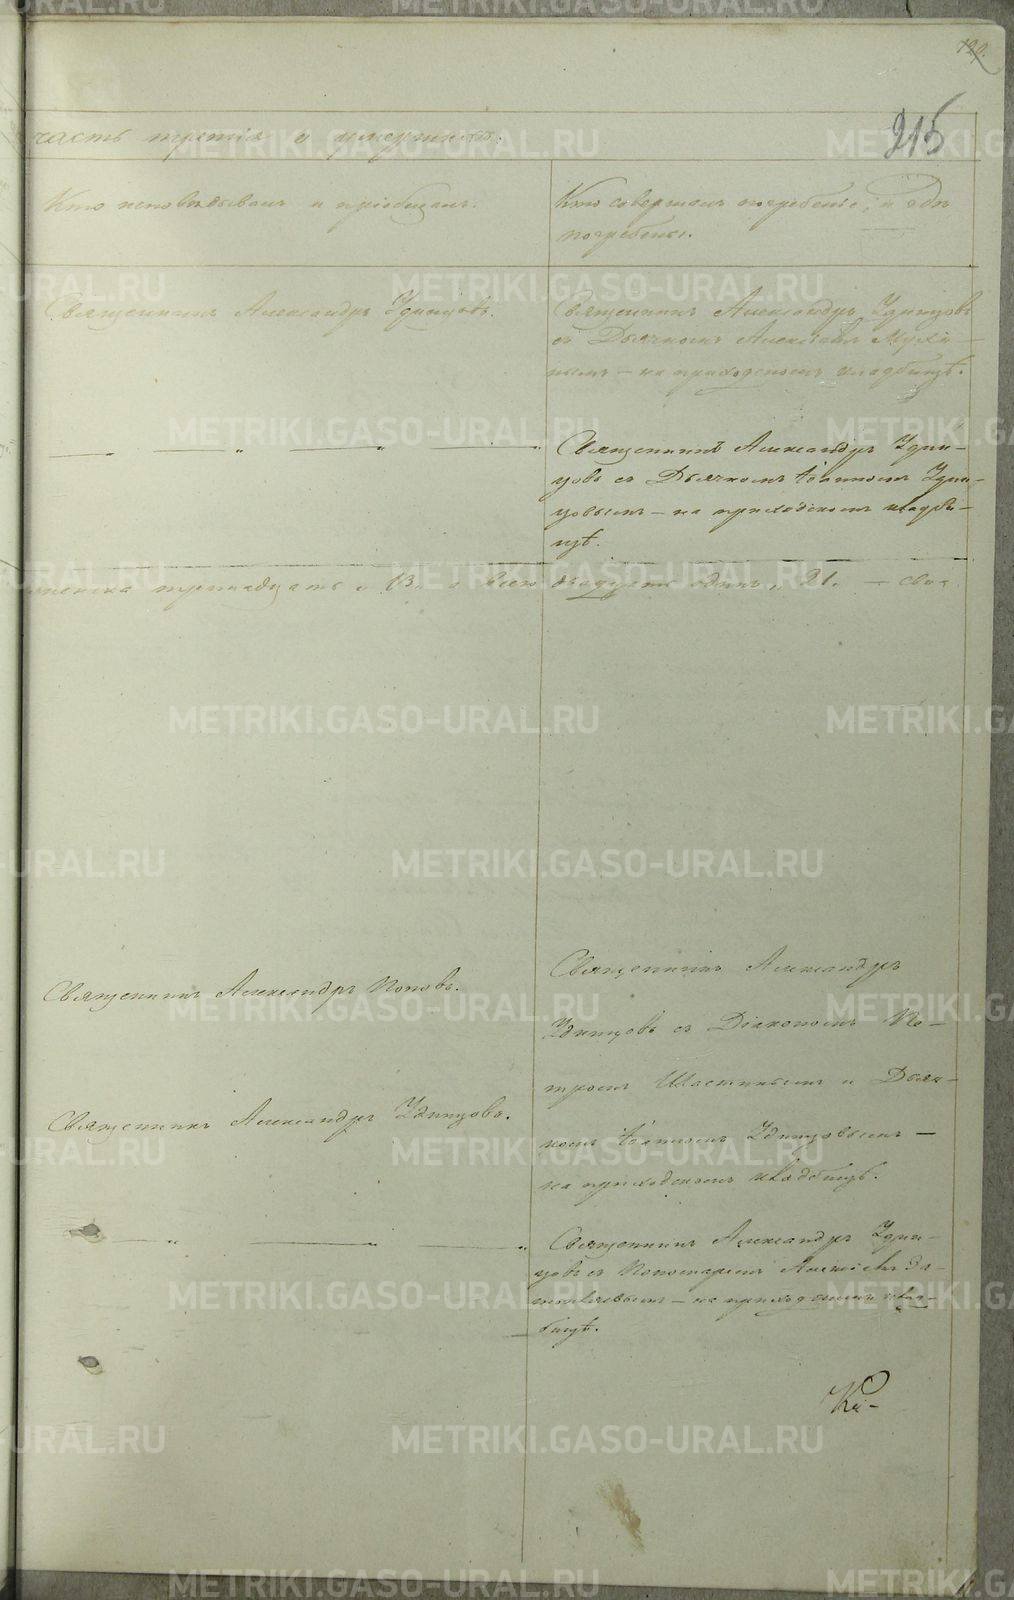 120.
215
часть третія о умершихъ.
Кто исповѣдывалъ и пріобщалъ.
Кто совершалъ погребеніе, и гдѣ
погребены.
Священникъ Александръ Удинцовъ.
Священникъ Александръ Удинцовъ
съ Дьячкомъ Алексѣемъ Мухи-
нымъ – на приходскомъ кладбищѣ.
Священникъ Александръ Удин-
цовъ съ Дьячкомъ Іоанномъ Удин-
цовымъ – на приходскомъ кладби-
щѣ.
женска тринадцать „ 13. а всего двадцать одинъ „ 21. –
Священникъ Александръ Поповъ.
Священникъ Александръ
Удинцовъ съ Діакономъ Пе-
тромъ Шастинымъ и Дьяч-
комъ Іоанномъ Удинцовымъ –
на приходскомъ кладбищѣ.
Священникъ Александръ Удинцовъ.
Священникъ Александръ Удин-
цовъ съ Пономаремъ Алексѣемъ
– на приходскомъ клад-
бищѣ.
METRIKI.GASO-URAL.RU